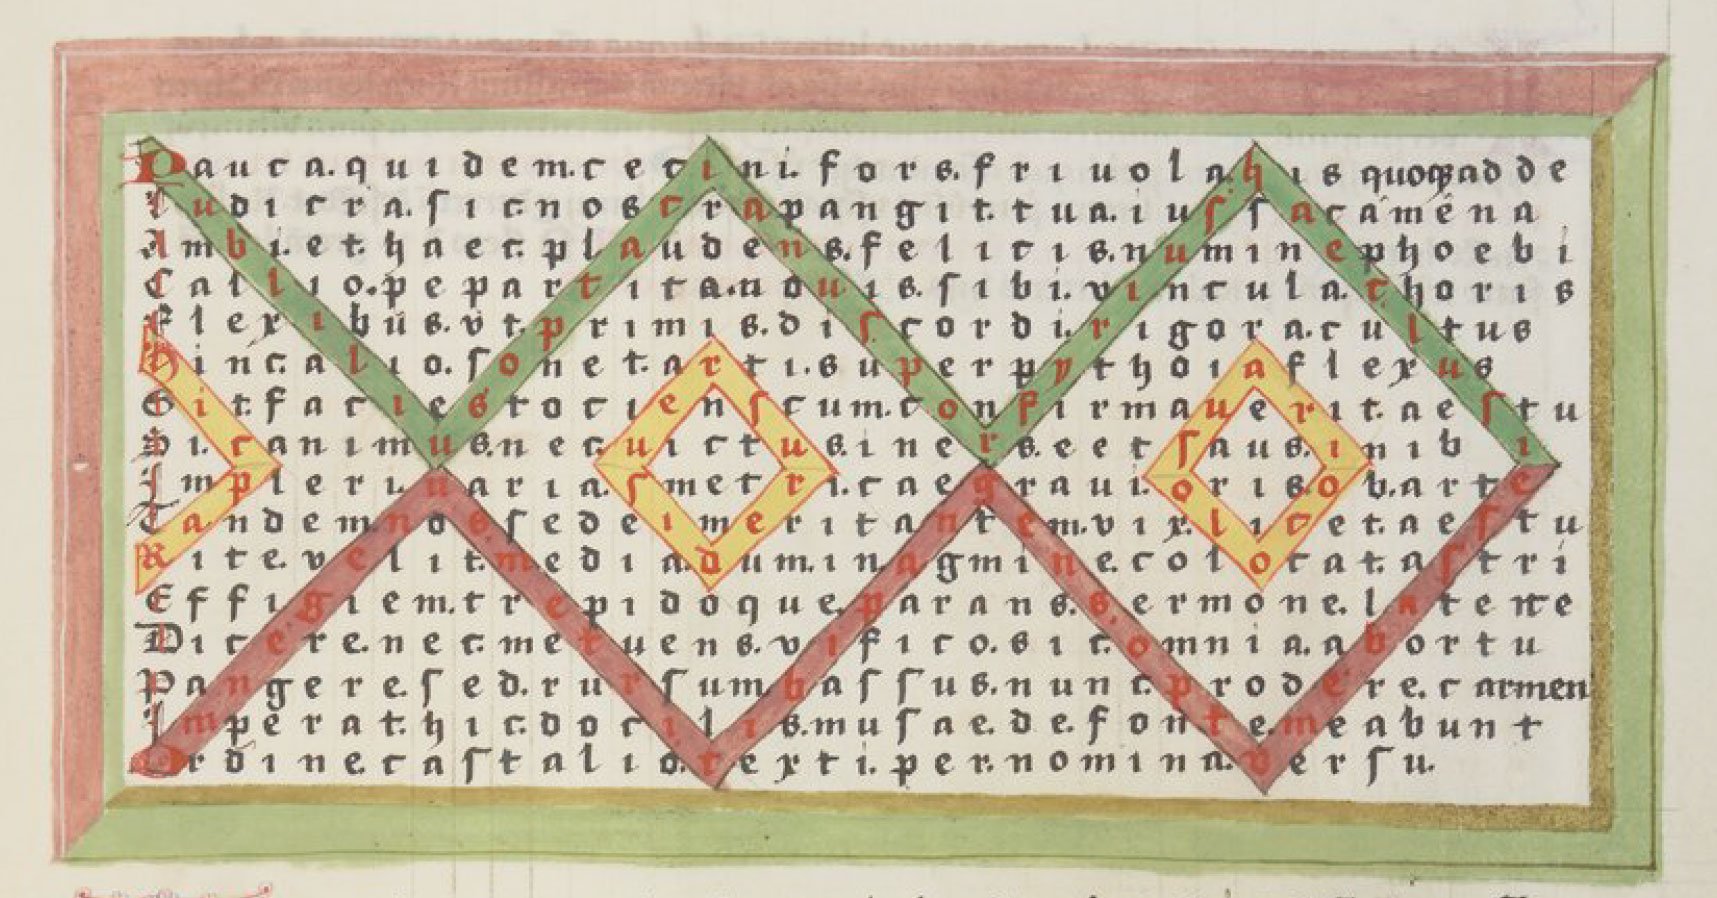 Pauca.quidem.cecini.fors.friuola his quoqꝫ adde
Ludicra.sic.nostra pangit.tua.iussa camena
Ambi.et.haec.plaudens.felicis.numine phoebi
Callio.pe partita.nduis.sibi.vincula.choris
Flexibus.vt.primis.discordi.rigora.cultus
Hinc.alio.sonet.artis.super pythoia flexus
Sit.facies tociens cum.confirmauerit.aestu
Dic.animus.nec.uictus.iners.eet saus.inib
Impleri.uaria.smetri.cae graui.oris ob.arte
Tandem nos.sedei meritantem.vix.licet.aestu
Rite.velit.media.dum.in agmine.colocat.astri
Effigiem.trepidoque.parans.sermone.latente
Dicere.nec.metuens.vifico.sit.omnia.abortu
Pangere.sed.rursum bassus.nunc.prodere.carmen
Imperat.hic.docilis.musae.de.fonte meabunt
Ordine.castalio.texti.per.nomina.versu.